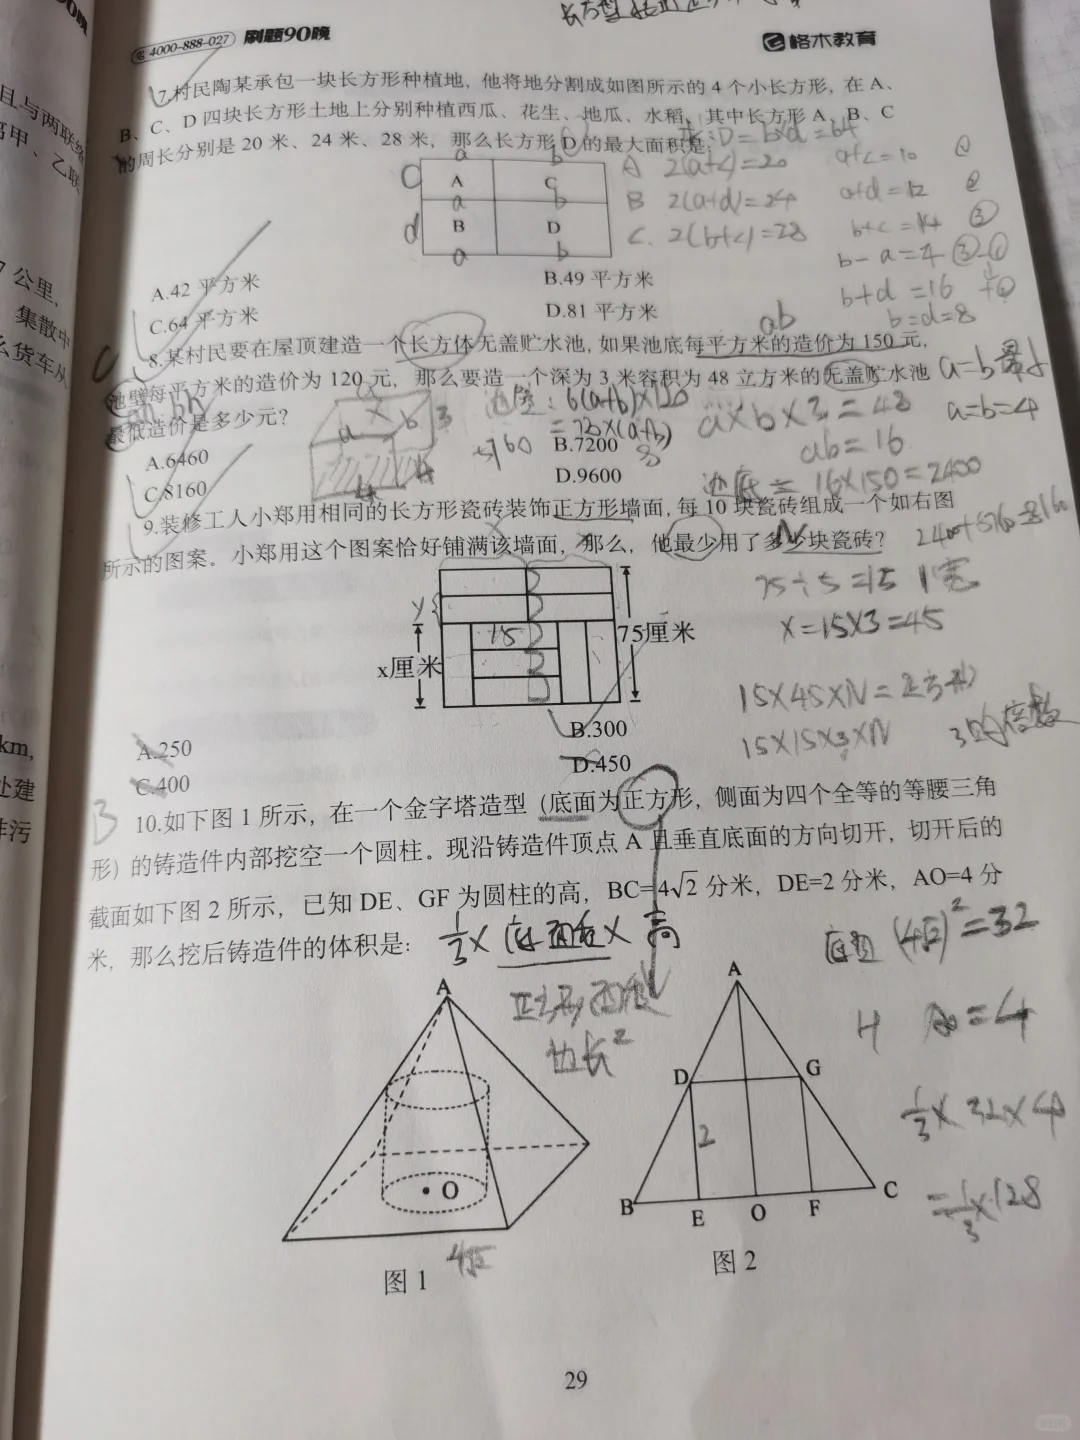 4000-888-027 刷题90晚 格木教育
7.村民陶某承包一块长方形种植地，他将地分割成如图所示的 4 个小长方形，在 A、
B、C、D 四块长方形土地上分别种植西瓜、花生、地瓜、水稻，其中长方形 A、B、C
的周长分别是 20 米、24 米、28 米，那么长方形 D 的最大面积是：
D=b×d=64
a b
c A C
a b
d B D
a b
A 2(a+c)=20 a+c=10 ①
B 2(a+d)=24 a+d=12 ②
C. 2(b+c)=28 b+c=14 ③
b-a=4 ③-①
b+d=16
b=d=8
A.42 平方米 B.49 平方米
C.64 平方米 D.81 平方米
ab
8.某村民要在屋顶建造一个长方体无盖贮水池，如果池底每平方米的造价为 150 元，
池壁每平方米的造价为 120 元，那么要造一个深为 3 米容积为 48 立方米的无盖贮水池
最低造价是多少元？
a=b
a=b=4
6(a+b)×120
a b 3
a×b×3=48
ab=16
16×150=2400
5760
A.6460 B.7200
C.8160 D.9600
9.装修工人小郑用相同的长方形瓷砖装饰正方形墙面，每 10 块瓷砖组成一个如右图
所示的图案。小郑用这个图案恰好铺满该墙面，那么，他最少用了多少块瓷砖？
2400+5760=8160
75÷5=15 1宽
x=15×3=45
y 15 75厘米
x厘米
15×45×N=正方形
15×15×3×N 3的倍数
A.250 B.300
C.400 D.450
B
10.如下图 1 所示，在一个金字塔造型（底面为正方形，侧面为四个全等的等腰三角
形）的铸造件内部挖空一个圆柱。现沿铸造件顶点 A 且垂直底面的方向切开，切开后的
截面如下图 2 所示，已知 DE、GF 为圆柱的高，BC=4√2 分米，DE=2 分米，AO=4 分
米，那么挖后铸造件的体积是：
1/3×底面积×高
正方形面积
边长²
(4√2)²=32
H AO=4
1/3×32×4
=1/3×128
A
O
4√2
图 1
A
D G
2
B E O F C
图 2
29